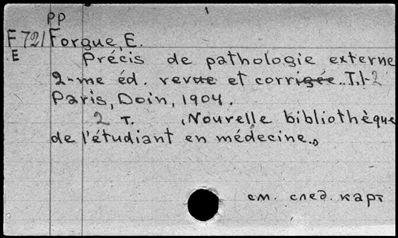 pp
F 721 Forgue, E.
E Précis de pathologie externe
2-me éd. revue et corrigée. T. 1-2
Paris, Doin, 1904.
2 т. (Nouvelle bibliothèque
de l'étudiant en médecine.)
см. след. карт